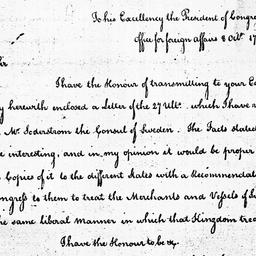 To his Excellency the President of Congre
Office for foreign Affairs 8 Octr. 17
Sir
I have the Honour of transmitting to your Ex
y herewith enclosed a Letter of the 27 Ult. which I have r
Mr. Soderstrom the Consul of Sweden. The Facts stated
e interesting, and in my opinion it would be proper
Copies of it to the different States with a Recommendat
ngress to them to treat the Merchants and Vessels of Sw
he same liberal Manner in which that Kingdom trea
I have the Honour to be &c.